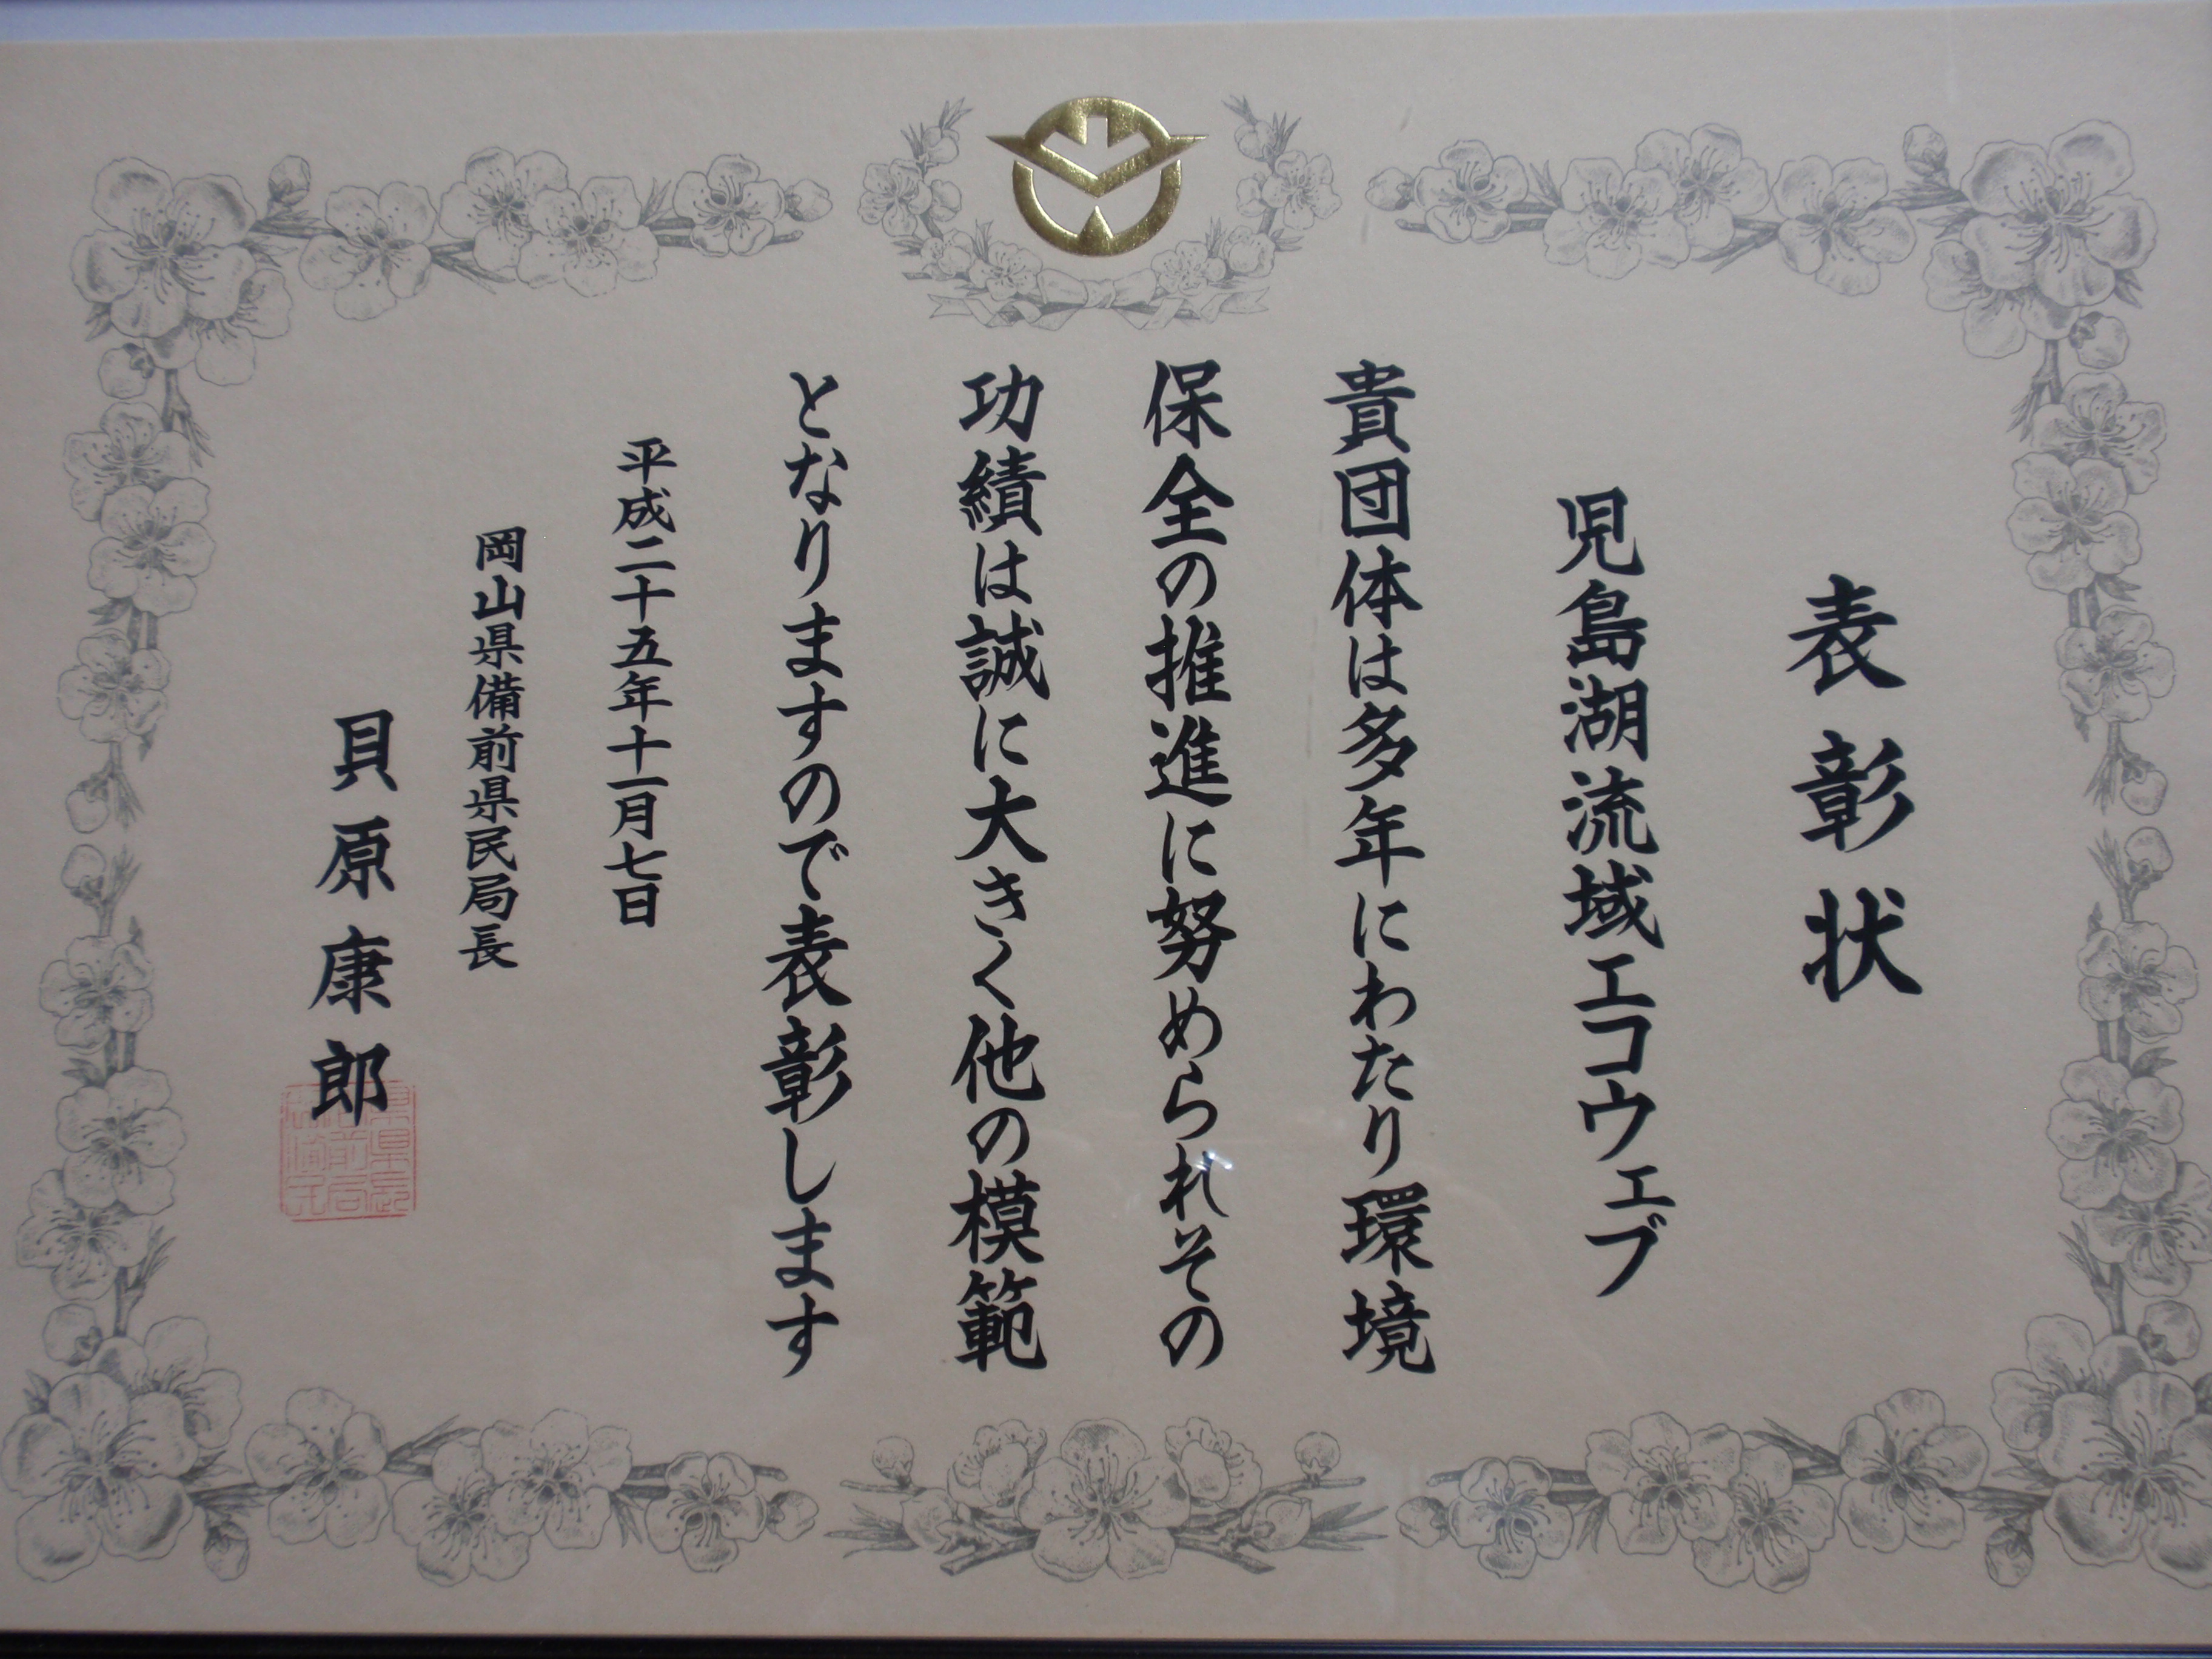 表彰状
児島湖流域エコウェブ
貴団体は多年にわたり環境
保全の推進に努められその
功績は誠に大きく他の模範
となりますので表彰します
平成二十五年十一月七日
岡山県備前県民局長
貝原康郎